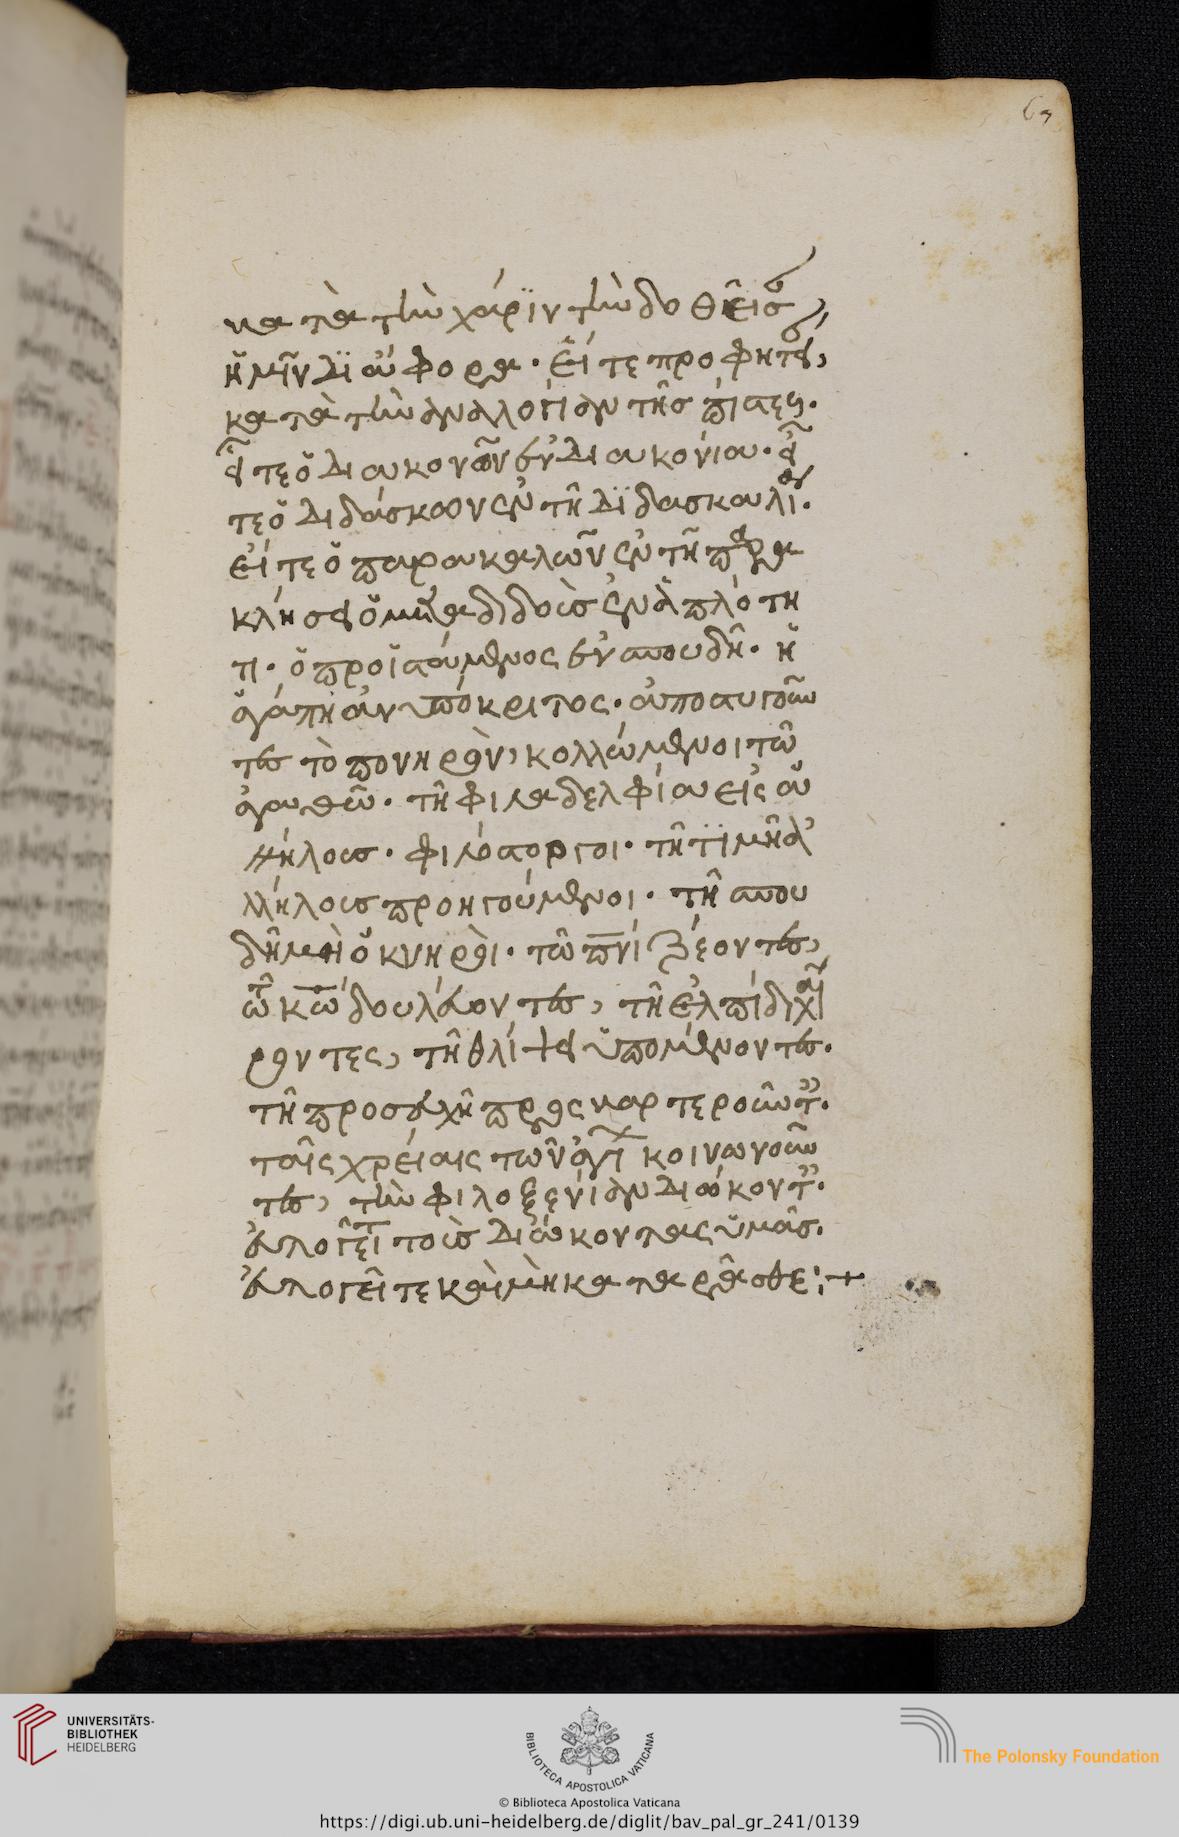 69
κατὰ τὴν χάριν τὴν δοθεῖσαν
ἡμῖν διάφορα· εἴτε προφητείαν,
κατὰ τὴν ἀναλογίαν τῆς πίστεως·
εἴτε ὁ διακονῶν ἐν διακονία· εἴ
τε ὁ διδάσκων ἐν τῆ διδασκαλία·
εἴτε ὁ παρακαλῶν ἐν τῆ παρα
κλήσει ὁ μεταδιδοὺς ἐν ἁπλότη
τι· ὁ προϊστάμενος ἐν σπουδῆ· ἡ
ἀγάπη ἀνυπόκριτος· ἀποστυγοῦν
τες τὸ πονηρὸν, κολλώμενοι τῶ
ἀγαθῶ· τῆ φιλαδελφία εἰς ἀλ
λήλους· φιλόστοργοι· τῆ τιμῆ ἀλ
λήλους προηγούμενοι· τῆ σπου
δῆ μὴ ὀκνηροὶ· τῶ πνι ζέοντες,
τῶ κω δουλεύοντες, τῆ ἐλπίδι χαί
ροντες, τῆ θλίψει ὑπομένοντες·
τῆ προσευχῆ προσκαρτεροῦντες·
ταῖς χρείαις τῶν ἁγίων κοινωνοῦν
τες, τὴν φιλοξενίαν διώκοντες·
εὐλογεῖτε τοὺς διώκοντας ὑμᾶς·
εὐλογεῖτε καὶ μὴ καταρᾶσθε:+
UNIVERSITÄTS-
BIBLIOTHEK
HEIDELBERG
BIBLIOTECA APOSTOLICA VATICANA
The Polonsky Foundation
© Biblioteca Apostolica Vaticana
https://digi.ub.uni-heidelberg.de/diglit/bav_pal_gr_241/0139